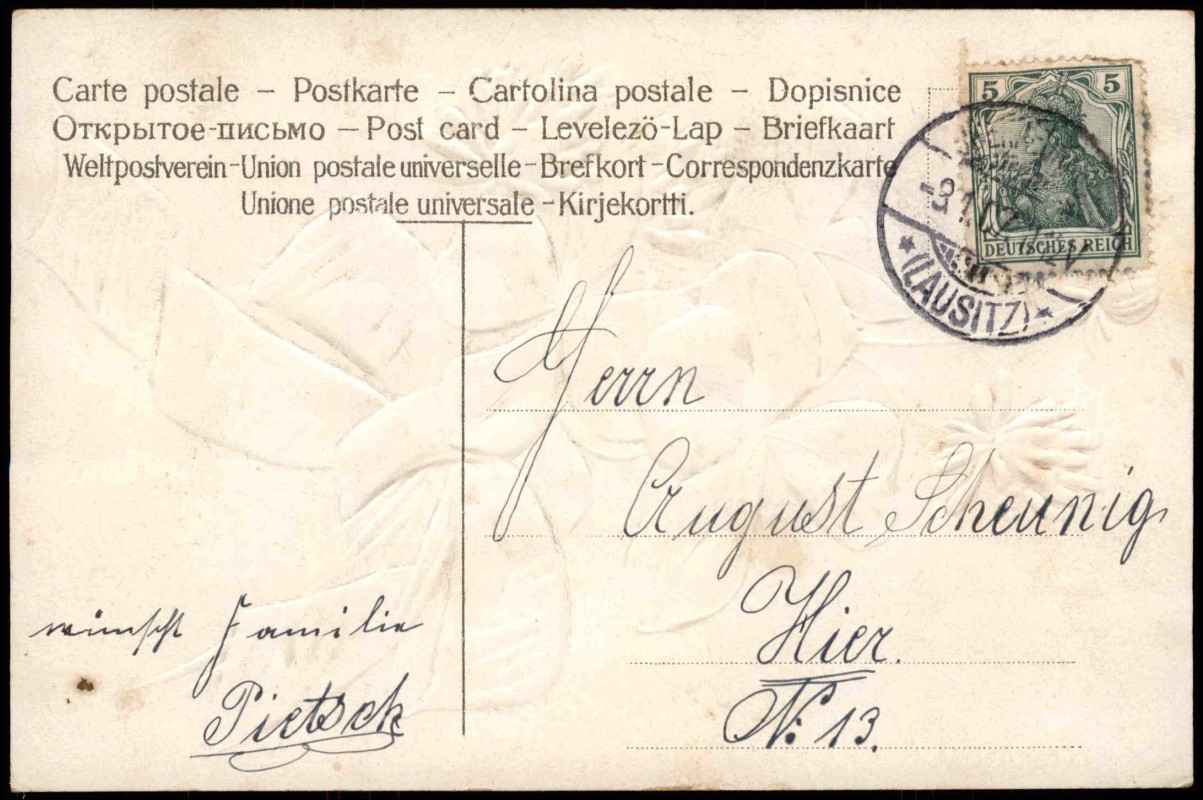 Carte postale – Postkarte – Cartolina postale – Dopisnice
Открытое-письмо – Post card – Levelezö-Lap – Briefkaart
Weltpostverein-Union postale universelle-Brefkort-Correspondenzkarte
Unione postale universale – Kirjekortti.
5 5
DEUTSCHES REICH
*(LAUSITZ)*
Herrn
August Scheunig
Hier.
N: 13.
wünscht Familie
Pietsch